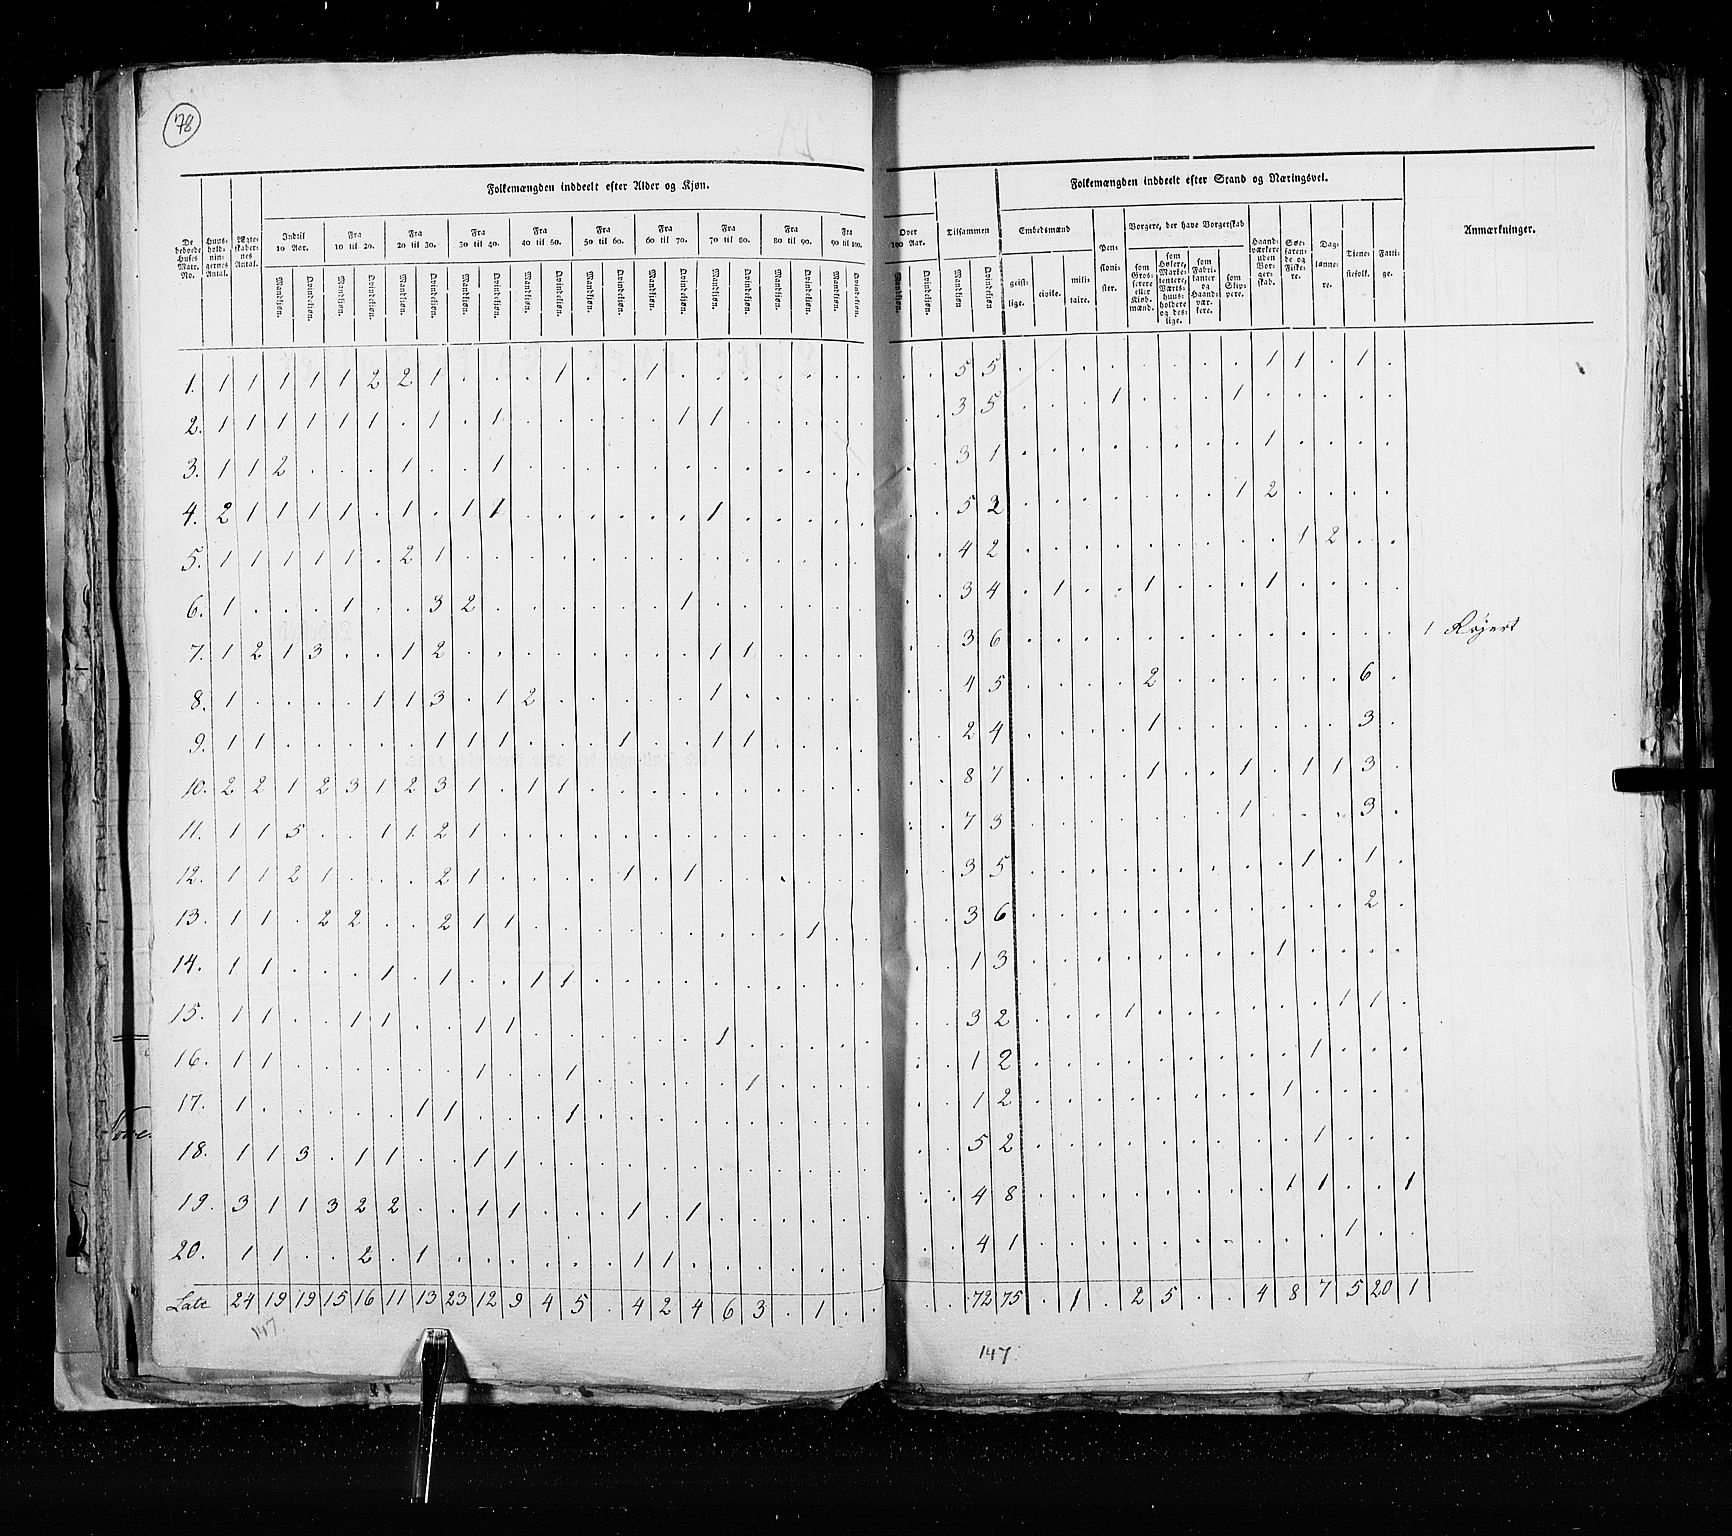 78
Folkemængden inddeelt efter Alder og Kjøn.
Folkemængden inddeelt efter Stand og Næringsvei.
De beboede Huses Matr. No.
Huusholdningernes Antal.
Ægteskabernes Antal.
Indtil 10 Aar.
Fra 10 til 20.
Fra 20 til 30.
Fra 30 til 40.
Fra 40 til 50.
Fra 50 til 60.
Fra 60 til 70.
Fra 70 til 80.
Fra 80 til 90.
Fra 90 til 100.
Over 100 Aar.
Tilsammen
Mandkjøn. Qvindekjøn. Mandkjøn. Qvindekjøn. Mandkjøn. Qvindekjøn. Mandkjøn. Qvindekjøn. Mandkjøn. Qvindekjøn. Mandkjøn. Qvindekjøn. Mandkjøn. Qvindekjøn. Mandkjøn. Qvindekjøn. Mandkjøn. Qvindekjøn. Mandkjøn. Qvindekjøn. Mandkjøn. Qvindekjøn. Mandkjøn Qvindekjøn
Embedsmænd
geistlige. civile. militaire.
Pensionister.
Borgere, der have Borgerskab
som Grosserere eller Kjøbmænd.
som Høkere, Marketentere, Værtshuusholdere og deslige.
som Fabrikanter og Haandværkere.
som Skippere.
Haandværkere uden Borgerskab.
Søefarende og Fiskere.
Daglønnere.
Tienestefolk.
Fattige.
Anmærkninger.
1. 1 1 1 1 1 2 2 1 . . . 1 . . 1 . . . . . . . . . 5 5 . . . . . . . . 1 1 . 1 .
2. 1 1 1 1 1 1 . 1 . 1 . . . . . 1 1 . . . . . . . 3 5 . . . 1 . . . 1 . . . . .
3. 1 1 2 . . . 1 . . 1 . . . . . . . . . . . . . . 3 1 . . . . . . . . 1 . . . .
4. 2 1 1 1 1 . 1 . 1 1 . . . . . . 1 . . . . . . . 5 2 . . . . . . . 1 2 . . . .
5. 1 1 1 1 1 . 2 1 . . . . . . . . . . . . . . . . 4 2 . . . . . . . . . 1 2 . .
6. 1 . . . 1 . . 3 2 . . . . . . 1 . . . . . . . . 3 4 . 1 . . 1 . . . 1 . . . .
7. 1 2 1 3 . . 1 2 . . . . . . . . 1 1 . . . . . . 3 6 . . . . . . . . . . . . . 1
8. 1 . . . . 1 1 3 . 1 2 . . . . . 1 . . . . . . . 4 5 . . . . 2 . . . . . . 6 .
9. 1 1 . . . . . 1 1 1 . . . 1 . . 1 1 . . . . . . 2 4 . . . . 1 . . . . . . 3 .
10. 2 2 1 2 3 1 2 3 1 . 1 1 . . . . . . . . . . . . 8 7 . . . . 1 . . 1 . 1 1 3 .
11. 1 1 5 . . 1 1 2 1 . . . . . . . . . . . . . . . 7 3 . . . . . . . 1 . . . 3 .
12. 1 1 2 1 . . . 2 1 . . . . 1 . 1 . . . . . . . . 3 5 . . . . . . . . . 1 . 1 .
13. 1 1 . 2 2 . . 2 1 1 . . . . . . . . . 1 . . . . 3 6 . . . . . . . . . . . 2 .
14. 1 1 . . . 1 . 1 . . 1 1 . . . . . . . . . . . . 1 3 . . . . . . . . 1 . . . .
15. 1 1 . . 1 1 . . 1 1 . . . . . . 1 . . . . . . . 3 2 . . . 1 . . . . . . 1 1 .
16. 1 1 . . . . . . 1 . . 1 . . . . . 1 . . . . . . 1 2 . . . . . . . . . 1 . . .
17. 1 . . . . . 1 1 . . . 1 . . . . . . . . . . . . 1 2 . . . . . . . . 1 . . . .
18. 1 1 3 . 1 1 . . 1 1 . . . . . . . . . . . . . . 5 2 . . . . . . . . . 1 . . .
19. 3 1 1 3 2 2 . . 1 1 . . . 1 . 1 . . . . . . . . 4 8 . . . . . . . . 1 1 . . 1
20. 1 1 . . 2 . 1 . . . . . . 1 1 . . . . . . . . . 4 1 . . . . . . . . . . 1 . .
Late 24 19 19 15 16 11 13 23 12 9 4 5 . 4 2 4 6 3 . 1 . . . . 72 75 . 1 . 2 5 . . 4 8 7 5 20 1
147
147.